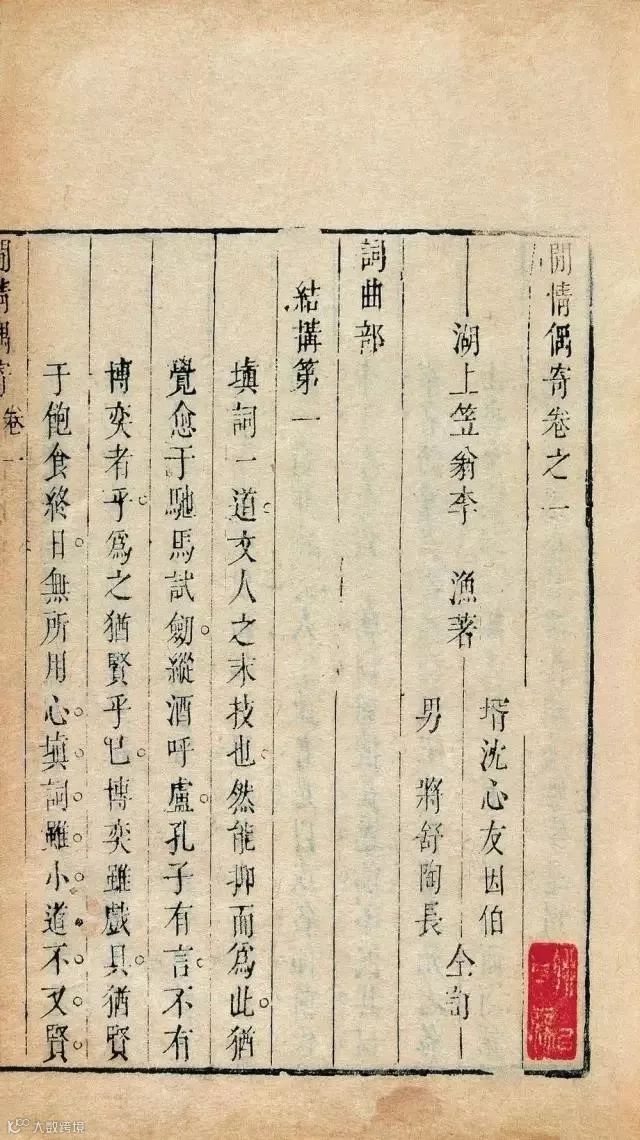 閒情偶寄卷之一
湖上笠翁李　漁著
壻沈心友因伯
男　將舒陶長
仝訂
詞曲部
結搆第一
填詞一道。文人之末技也。然能抑而爲此。猶
覺愈于馳馬試劍。縱酒呼盧。孔子有言。不有
博奕者乎。爲之猶賢乎已。博奕雖戲具。猶賢
于飽食終日。無所用心。填詞雖小道。不又賢
閒情偶寄　卷一
大数跨境